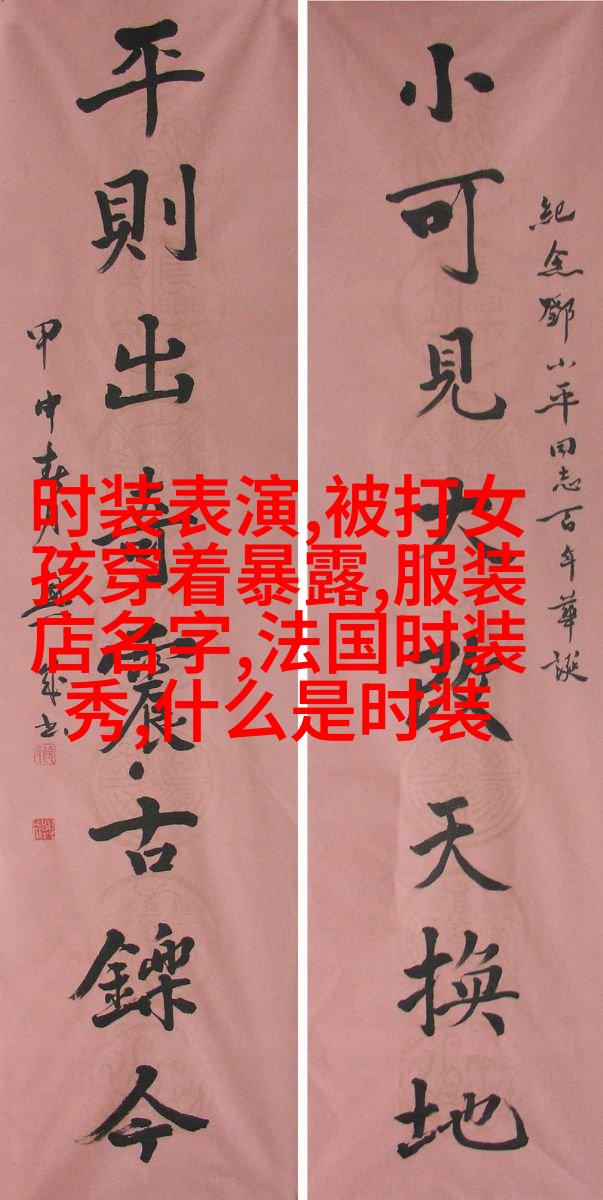 紀念鄧小平同志百年華誕
小可見大改天換地
平則出奇震古鑠今
甲申春月
时装表演,被打女
孩穿着暴露,服装
店名字,法国时装
秀,什么是时装